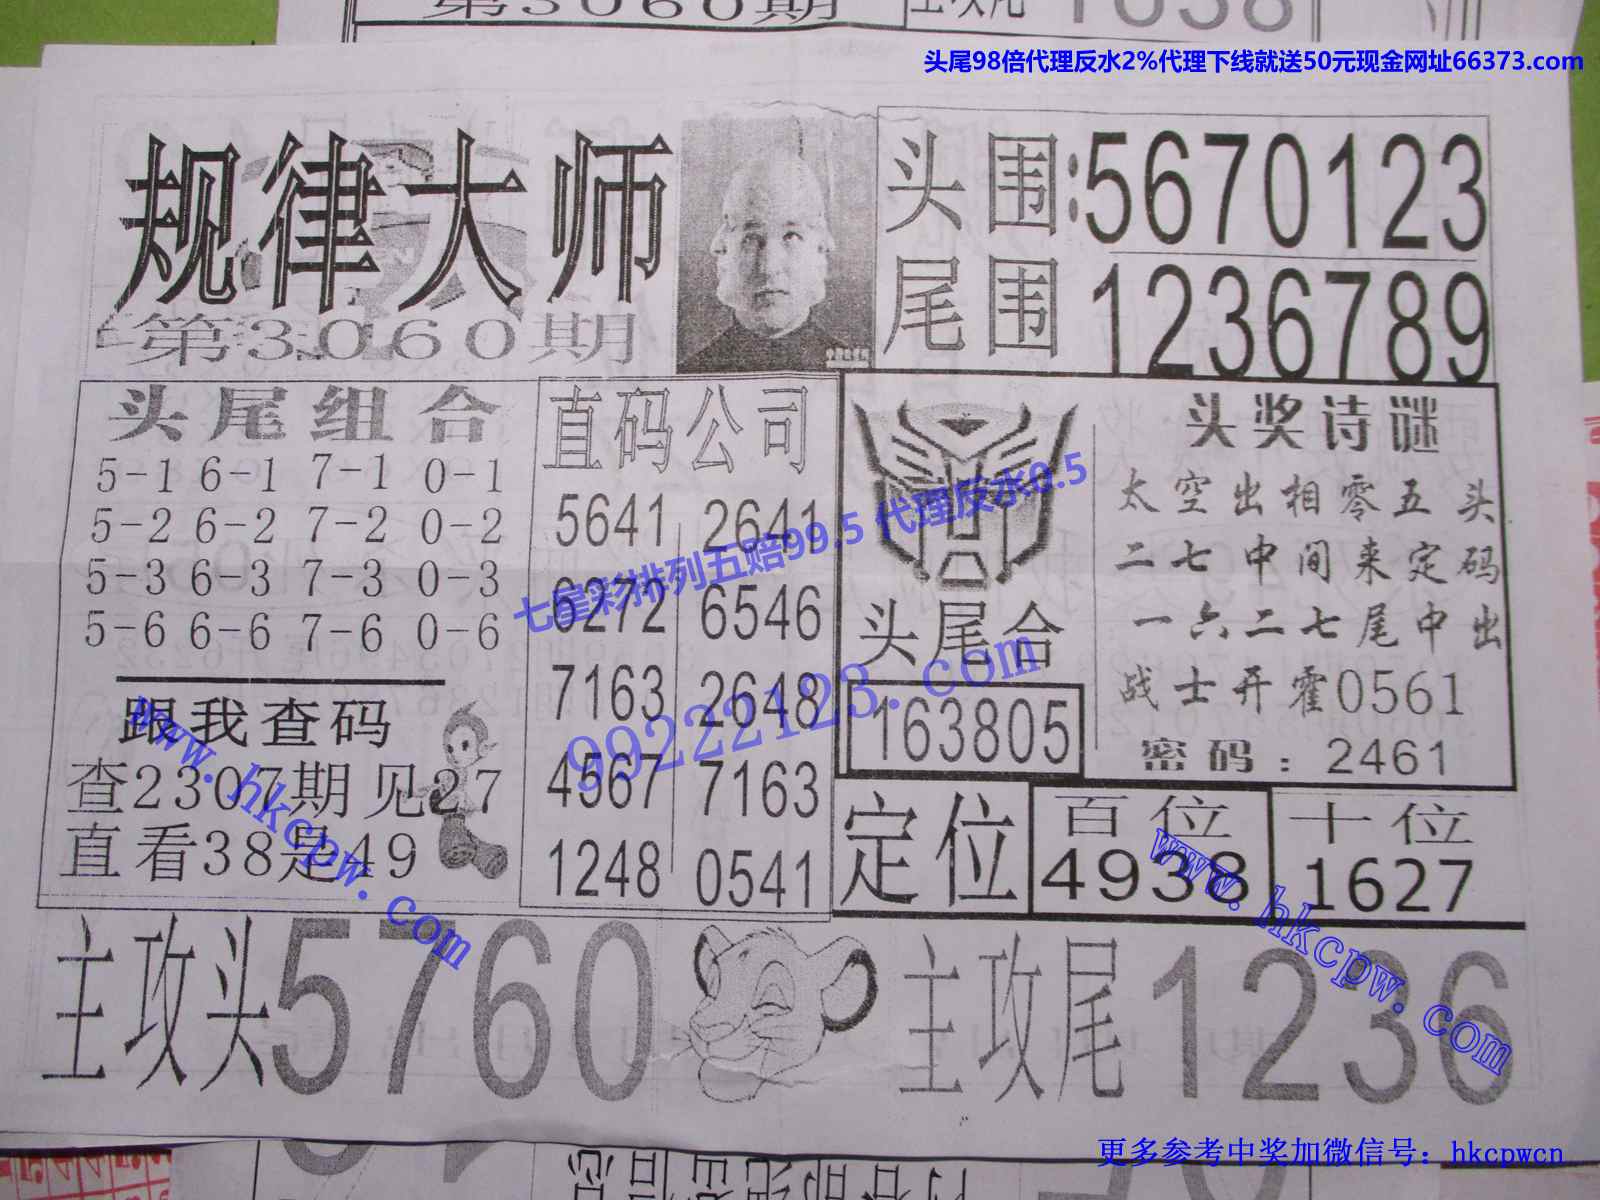 第3060期
主攻尾1638
头尾98倍代理反水2%代理下线就送50元现金网址66373.com
规律大师
第3060期
头围:5670123
尾围1236789
头尾组合
5-1 6-1 7-1 0-1
5-2 6-2 7-2 0-2
5-3 6-3 7-3 0-3
5-6 6-6 7-6 0-6
跟我查码
查2307期见27
直看38是49
直码公司
5641 2641
6272 6546
7163 2648
4567 7163
1248 0541
七星彩排列五赔99.5 代理反水0.5
99222123.com
头尾合
163805
头奖诗谜
太空出相零五头
二七中间来定码
一六二七尾中出
战士开霍0561
密码:2461
定位
百位
4938
十位
1627
www.hkcpw.com
www.hkcpw.com
主攻头5760
主攻尾1236
更多参考中奖加微信号：hkcpwcn